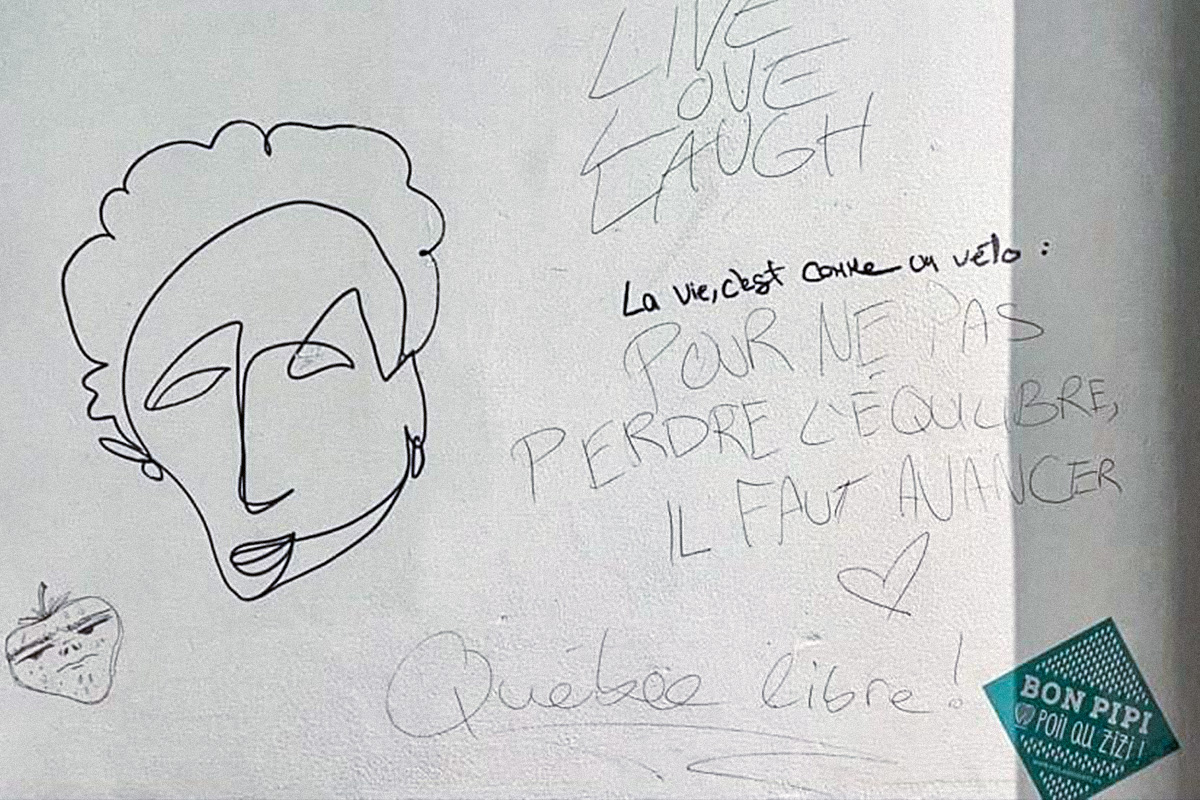 LIVE
LOVE
LAUGH
La vie, c'est comme un vélo :
POUR NE PAS
PERDRE L'ÉQUILIBRE,
IL FAUT AVANCER
Québec libre !
BON PIPI
POIL AU ZIZI !